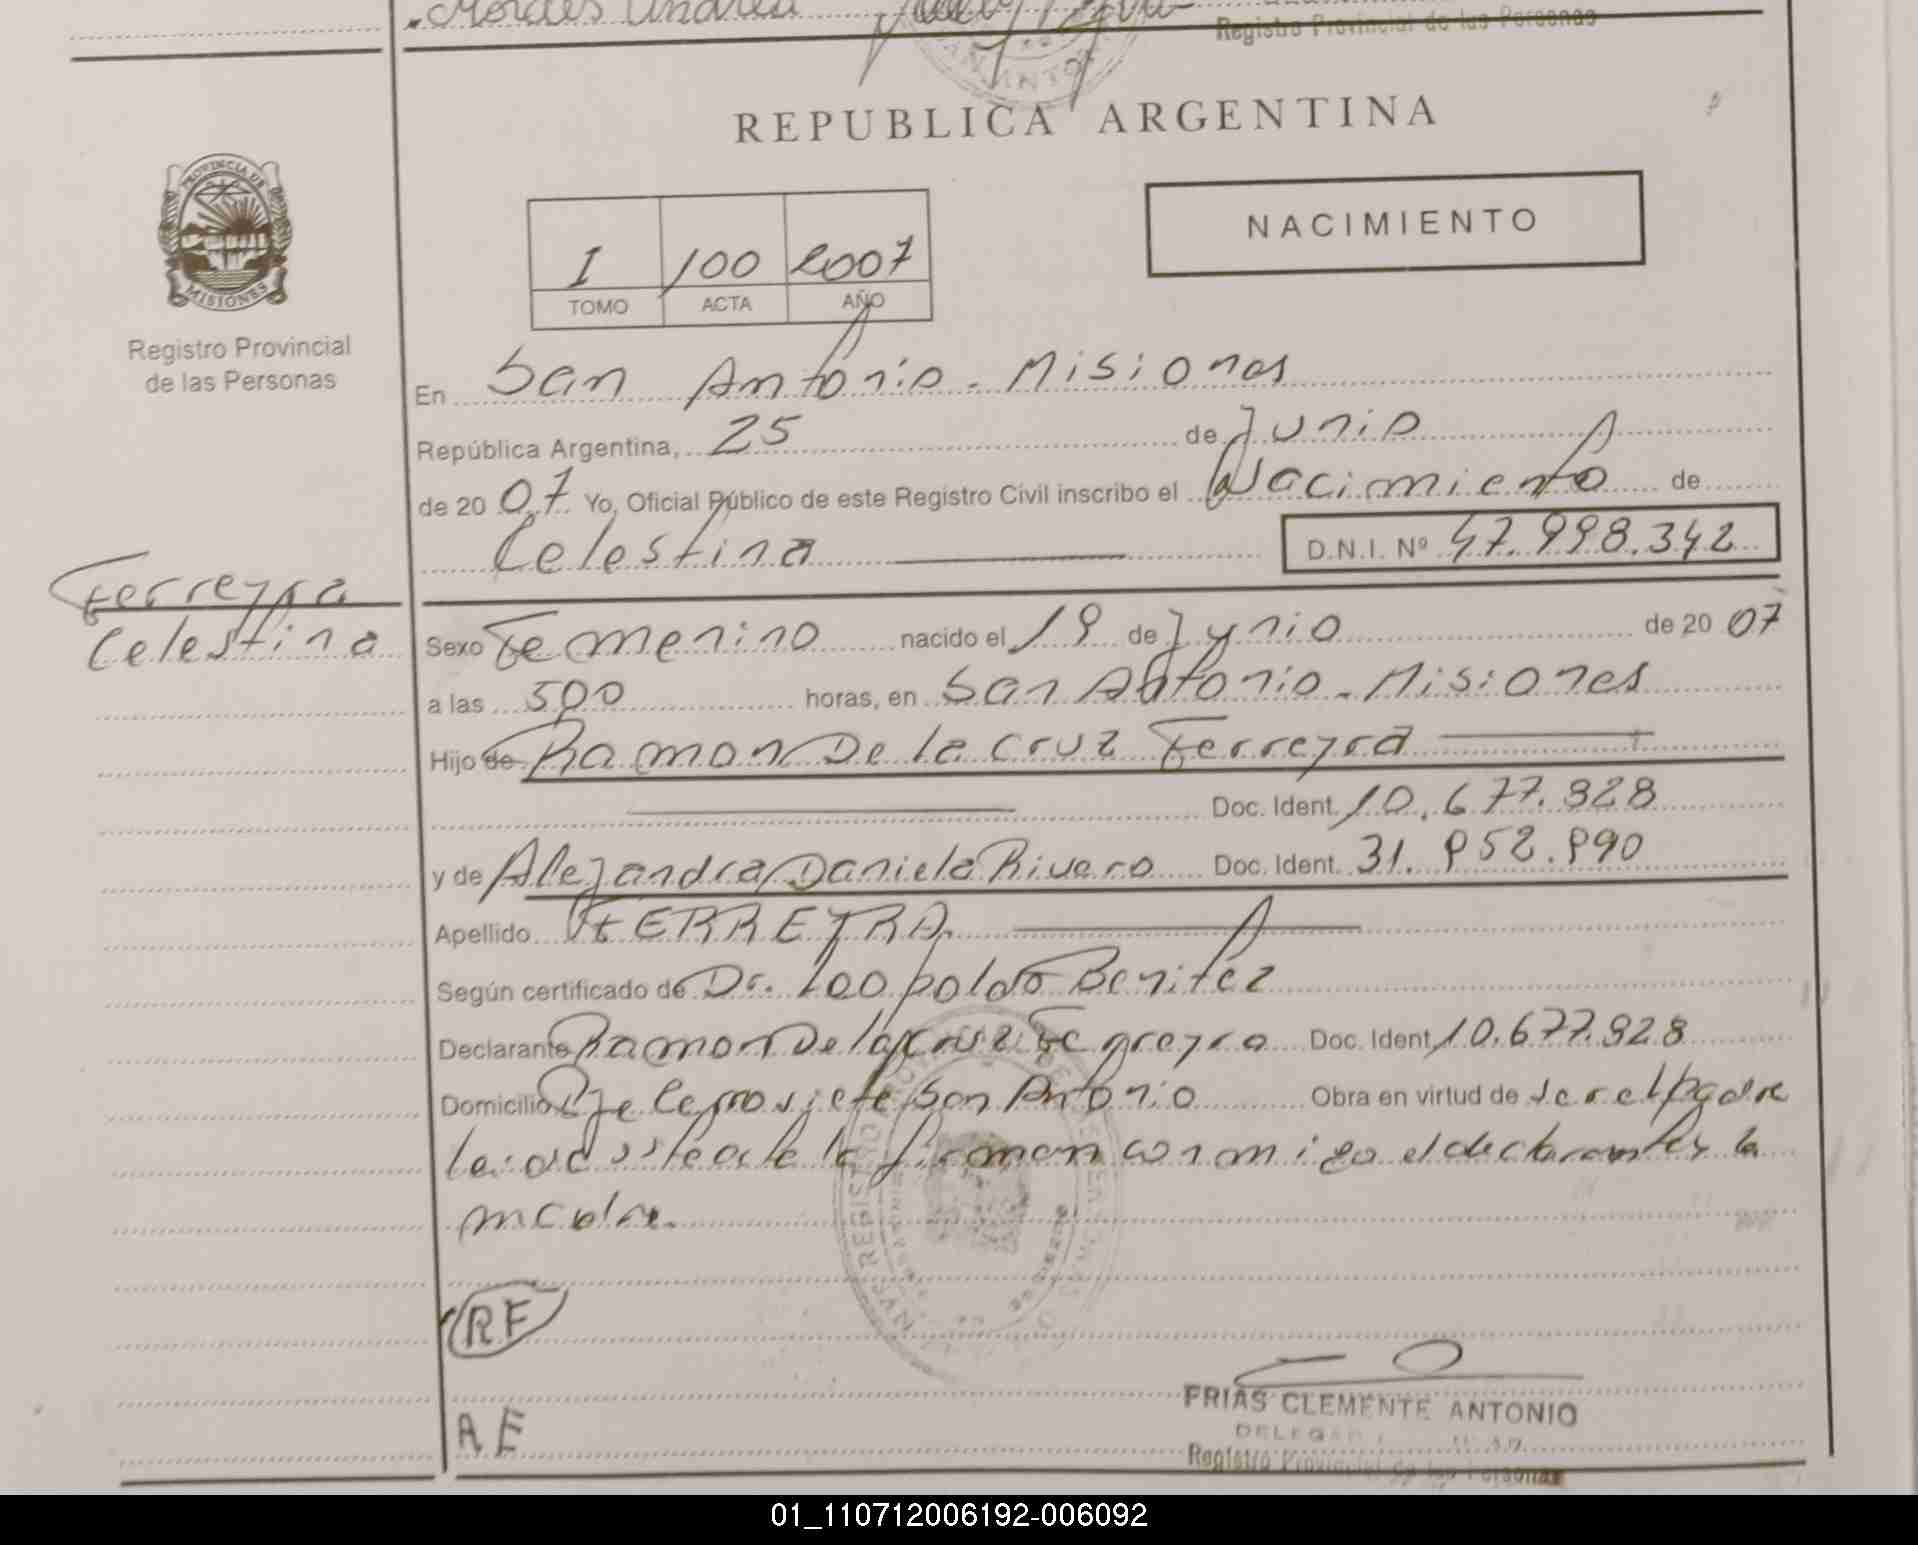 Morales Andrea
Registro Provincial de las Personas
REPUBLICA ARGENTINA
PROVINCIA DE
MISIONES
Registro Provincial
de las Personas
NACIMIENTO
I 100 2007
TOMO ACTA AÑO
En San Antonio - Misiones
República Argentina, 25 de Junio
de 20 07 Yo, Oficial Público de este Registro Civil inscribo el Nacimiento de
Celestina D.N.I. Nº 47.998.342
Ferreyra
Celestina
Sexo Femenino nacido el 19 de Junio de 20 07
a las 500 horas, en San Antonio - Misiones
Hijo de Ramon De la Cruz Ferreyra
Doc. Ident. 10.677.928
y de Alejandra Daniela Rivero Doc. Ident. 31.952.990
Apellido FERREYRA
Según certificado de Dr. Leopoldo Benitez
Declarante Ramon De la Cruz Ferreyra Doc. Ident. 10.677.928
Domicilio San Antonio Obra en virtud de ser el padre
firman conmigo el declarante y la
madre.
RF
AE
FRIAS CLEMENTE ANTONIO
Registro Provincial de las Personas
01_110712006192-006092